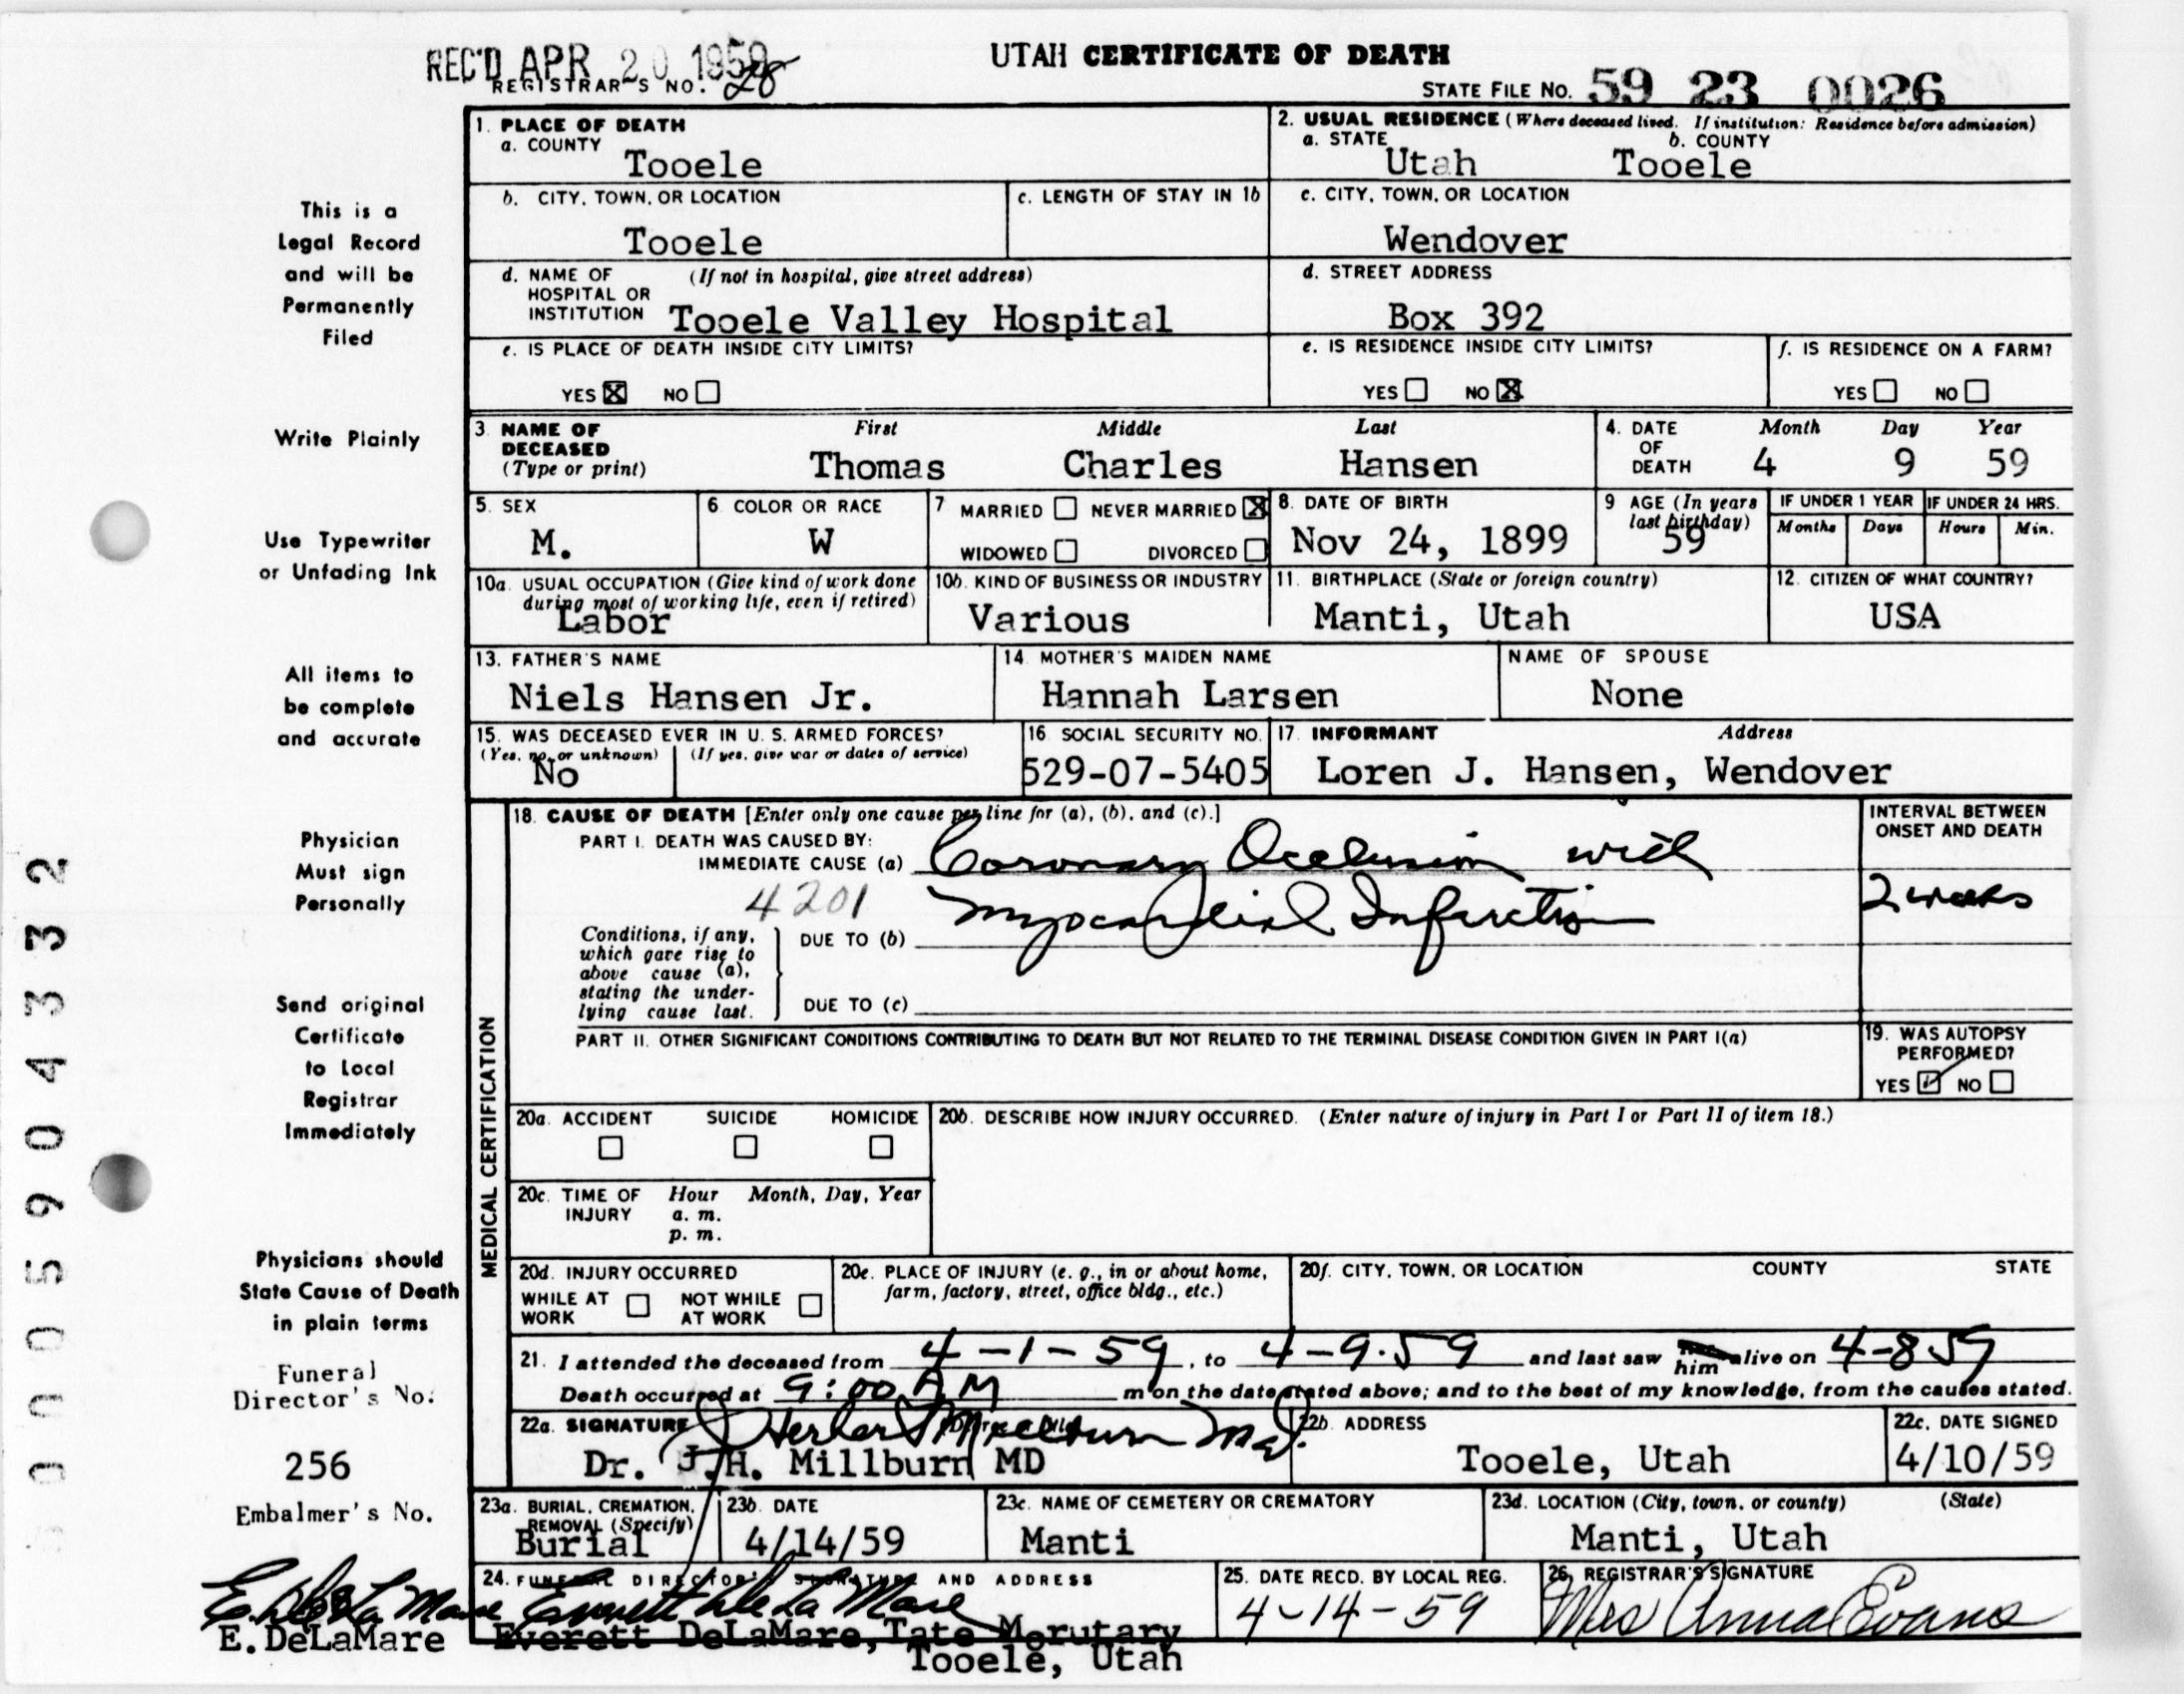 REC'D APR 20 1959
UTAH CERTIFICATE OF DEATH
REGISTRAR'S NO. 28
STATE FILE NO. 59 23 0026
1. PLACE OF DEATH
a. COUNTY
Tooele
2. USUAL RESIDENCE (Where deceased lived. If institution: Residence before admission)
a. STATE b. COUNTY
Utah Tooele
b. CITY, TOWN, OR LOCATION
Tooele
c. LENGTH OF STAY IN 1b
c. CITY, TOWN, OR LOCATION
Wendover
d. NAME OF (If not in hospital, give street address)
HOSPITAL OR
INSTITUTION Tooele Valley Hospital
d. STREET ADDRESS
Box 392
e. IS PLACE OF DEATH INSIDE CITY LIMITS?
YES X NO
e. IS RESIDENCE INSIDE CITY LIMITS?
YES NO X
f. IS RESIDENCE ON A FARM?
YES NO
3. NAME OF DECEASED (Type or print)
First Middle Last
Thomas Charles Hansen
4. DATE OF DEATH
Month Day Year
4 9 59
5. SEX
M.
6. COLOR OR RACE
W
7 MARRIED NEVER MARRIED X
WIDOWED DIVORCED
8. DATE OF BIRTH
Nov 24, 1899
9 AGE (In years
last birthday)
59
IF UNDER 1 YEAR
Months Days
IF UNDER 24 HRS.
Hours Min.
10a. USUAL OCCUPATION (Give kind of work done
during most of working life, even if retired)
Labor
10b. KIND OF BUSINESS OR INDUSTRY
Various
11. BIRTHPLACE (State or foreign country)
Manti, Utah
12. CITIZEN OF WHAT COUNTRY?
USA
13. FATHER'S NAME
Niels Hansen Jr.
14. MOTHER'S MAIDEN NAME
Hannah Larsen
NAME OF SPOUSE
None
15. WAS DECEASED EVER IN U. S. ARMED FORCES?
(Yes, no, or unknown) (If yes, give war or dates of service)
No
16. SOCIAL SECURITY NO.
529-07-5405
17. INFORMANT Address
Loren J. Hansen, Wendover
MEDICAL CERTIFICATION
18. CAUSE OF DEATH [Enter only one cause per line for (a), (b), and (c).]
PART I. DEATH WAS CAUSED BY:
IMMEDIATE CAUSE (a) Coronary Occlusion with
4201 Myocardial Infarction
Conditions, if any,
which gave rise to
above cause (a),
stating the under-
lying cause last.
DUE TO (b)
DUE TO (c)
INTERVAL BETWEEN
ONSET AND DEATH
2 weeks
PART II. OTHER SIGNIFICANT CONDITIONS CONTRIBUTING TO DEATH BUT NOT RELATED TO THE TERMINAL DISEASE CONDITION GIVEN IN PART I(a)
19. WAS AUTOPSY
PERFORMED?
YES NO
20a. ACCIDENT SUICIDE HOMICIDE
20b. DESCRIBE HOW INJURY OCCURRED. (Enter nature of injury in Part I or Part II of item 18.)
20c. TIME OF INJURY Hour Month, Day, Year
a. m.
p. m.
20d. INJURY OCCURRED
WHILE AT WORK NOT WHILE AT WORK
20e. PLACE OF INJURY (e. g., in or about home,
farm, factory, street, office bldg., etc.)
20f. CITY, TOWN, OR LOCATION COUNTY STATE
21. I attended the deceased from 4-1-59, to 4-9-59 and last saw him alive on 4-8 59
Death occurred at 9:00 AM m on the date stated above; and to the best of my knowledge, from the causes stated.
22a. SIGNATURE J Herbert Millburn Md.
Dr. J.H. Millburn MD
22b. ADDRESS
Tooele, Utah
22c. DATE SIGNED
4/10/59
23a. BURIAL, CREMATION,
REMOVAL (Specify)
Burial
23b. DATE
4/14/59
23c. NAME OF CEMETERY OR CREMATORY
Manti
23d. LOCATION (City, town, or county) (State)
Manti, Utah
24. FUNERAL DIRECTOR'S SIGNATURE AND ADDRESS
Everett DeLaMare
Everett DeLaMare, Tate Morutary
Tooele, Utah
25. DATE RECD. BY LOCAL REG.
4-14-59
26. REGISTRAR'S SIGNATURE
Mrs Anna Evans
This is a
Legal Record
and will be
Permanently
Filed
Write Plainly
Use Typewriter
or Unfading Ink
All items to
be complete
and accurate
Physician
Must sign
Personally
Send original
Certificate
to Local
Registrar
Immediately
Physicians should
State Cause of Death
in plain terms
Funeral
Director's No.
256
Embalmer's No.
E. DeLaMare
E. DeLaMare
0005904332